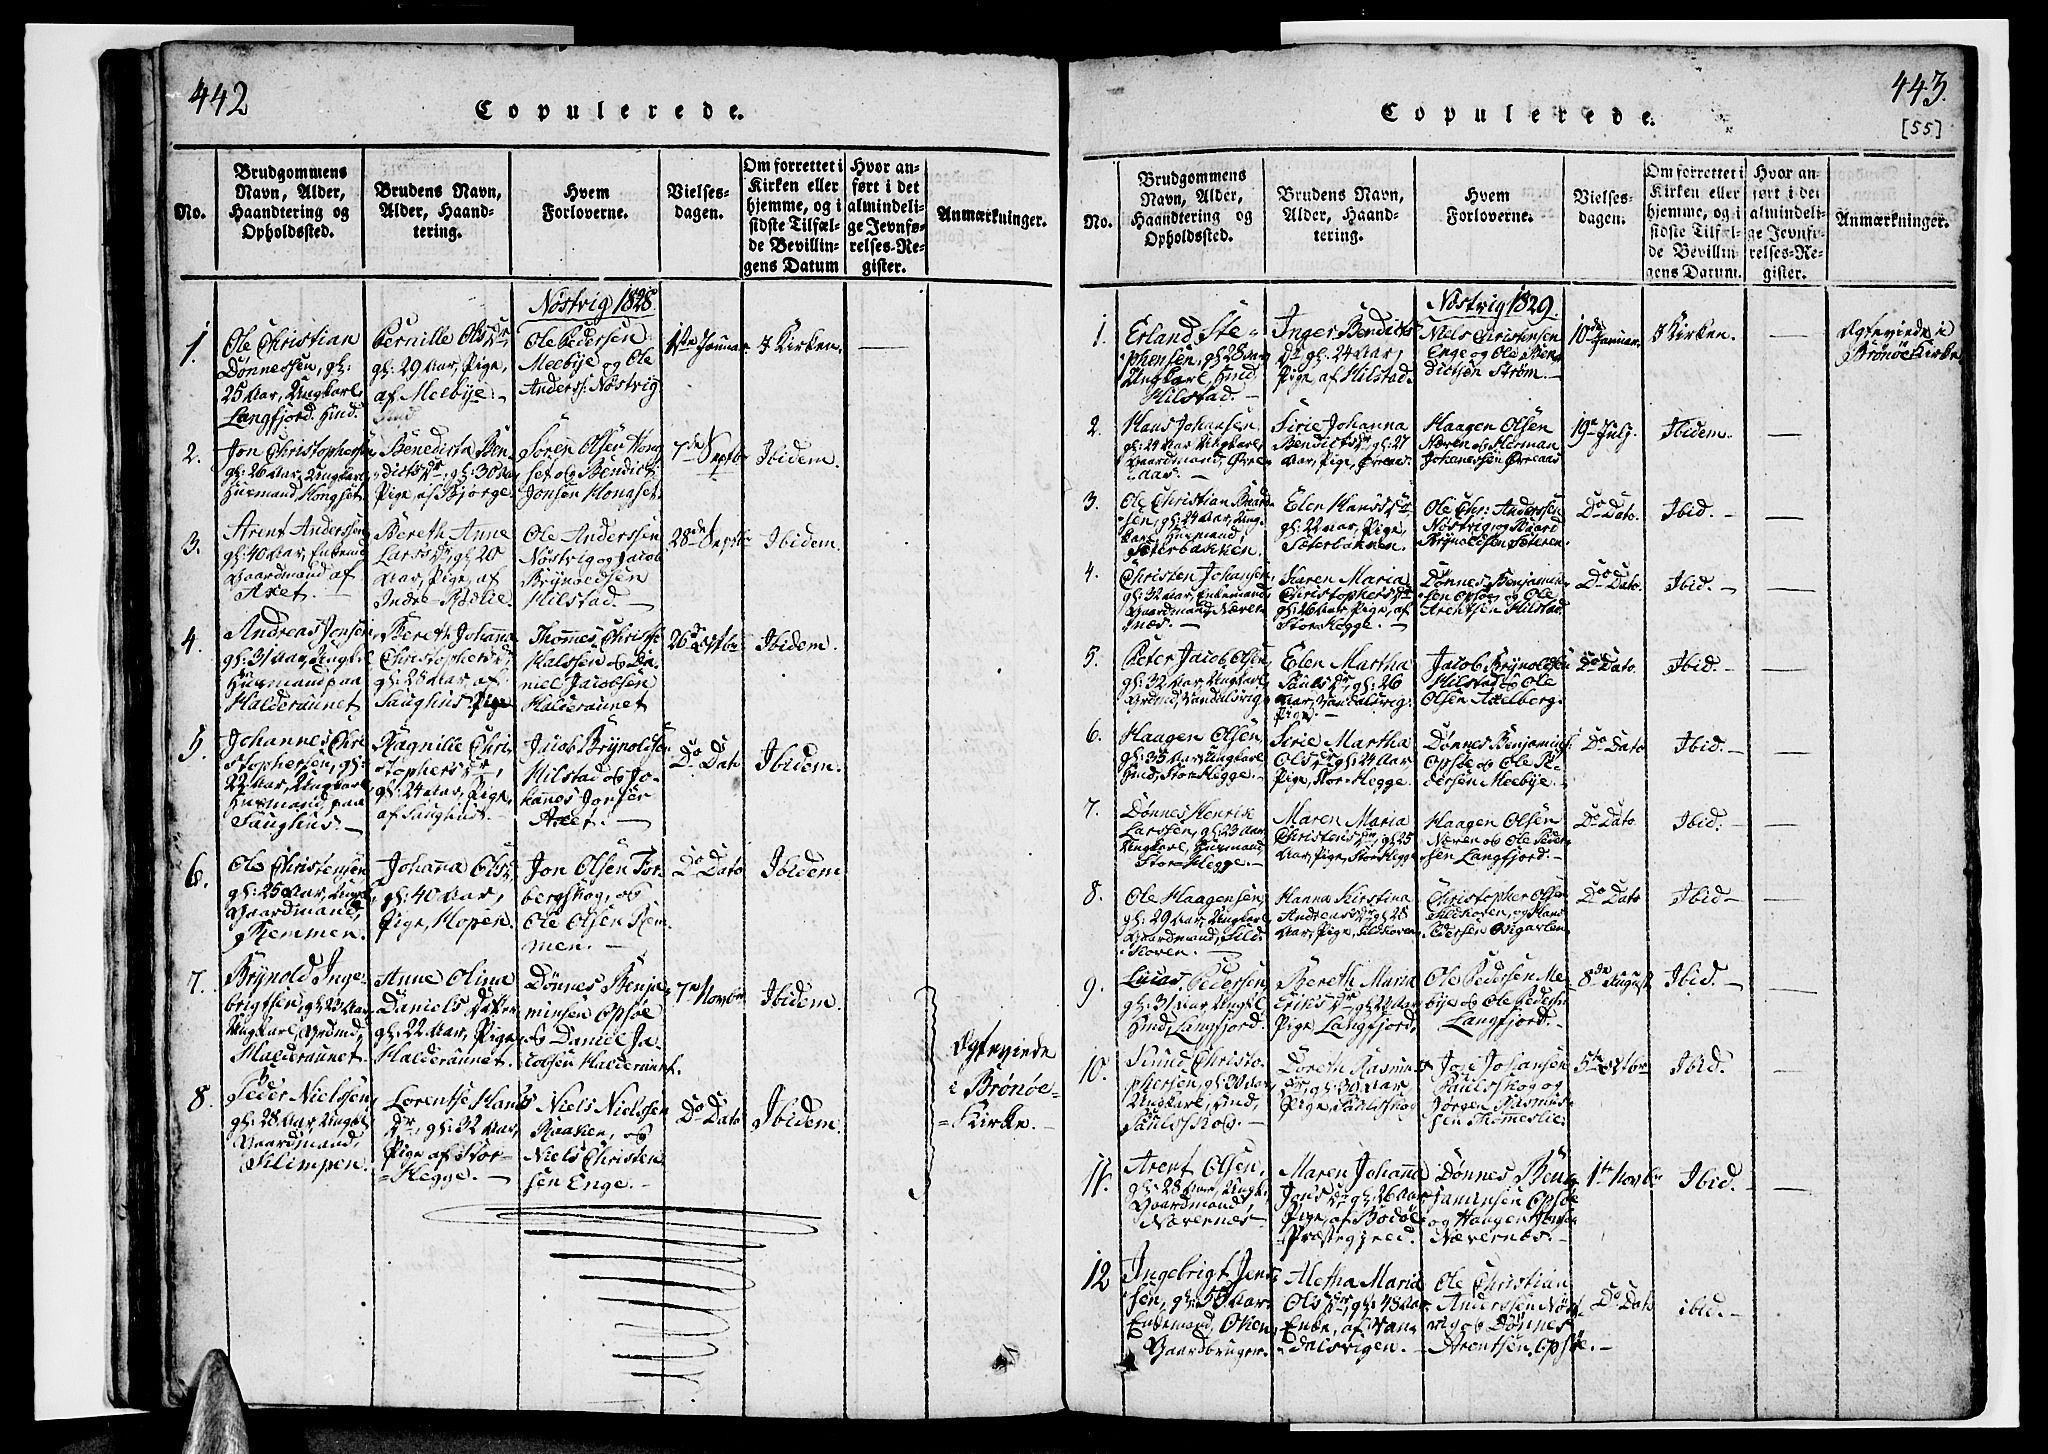 442
Copulerede.
No.
Brudgommens
Navn, Alder,
Haandtering og
Opholdssted.
Brudens Navn,
Alder, Haand-
tering.
Hvem
Forloverne.
Vielses-
dagen.
Om forrettet i
Kirken eller
hjemme, og i
sidste Tilfæl-
de Bevillin-
gens Datum
Hvor an-
ført i det
almindeli-
ge Jevnfø-
relses-Re-
gister.
Anmærkninger.
Nöstvig 1828
1.
Ole Christian
Dönnessen, gl:
25 Aar, Ungkarl,
Langfjord. Hmd.
Pernille Olsdr,
gl: 29 Aar, Pige,
af Melbÿe.
Ole Pedersen
Meebÿe og Ole
Anders: Nöstvig
Januar
I Kirken.
2.
Jon Christophersen
gl: 26 Aar, Ungkarl
Huusmand, Hongset
Benedicta Ben-
dictsdr, gl: 30 Aar
Pige, af Bjørge.
Sören Olsen Hong
set og Bendict
Jonsen Hongset.
7de Septbr
Ibidem.
3.
Arent Anderssen
gl: 40 Aar, Enkemd
Gaardmand af
Axet.
Bereth Anne
Larsdr, gl: 20
Aar, Pige, af
Indre
Ole Anderssen
Nöstvig og Jacob
Brÿnoldsen
Hilstad.
28de Septbr
Ibidem.
4.
Andreas Jonsen,
gl: 31 Aar, Ungkl
Huusmand paa
Halderaunet
Bereth Johanna
Christophersdr,
gl: 25 Aar, af
Saughus Pige
Thomes Christ
og Da
niel Jacobsen
Halderaunet
26de Octbr
Ibidem.
5.
Johannes Chri
stophersen, gl:
22 Aar, Ungkarl
Huusmand, paa
Saughus.
Ragnille Chri
stophersdr,
gl: 24 Aar, Pige,
af Saughus.
Jacob Brÿnoldsen
Hilstad og Jo-
hannes Jonsen
Axet.
Do Dato
Ibidem.
6.
Ole Christensen
gl: 25 Aar, Ungkl,
Gaardmand,
Remmen.
Johanna Olsdr,
gl: 40 Aar,
Pige, Hopen.
Jon Olsen Tor-
bergskog, og
Ole Olsen Rem-
men.
Do Dato
Ibidem
7.
Brÿnold Inge-
brigtsen, gl: 23 Aar
Ungkarl, Grdmd,
Halderaunet.
Anne Olina
Daniels Datter
gl: 22 Aar, Pige
Halderaunet.
Dønnes Benja-
minsen Opsøe
og Daniel Ja-
cobsen Halderaunet.
7de Novbr
Ibidem.
8.
Peder Nielssen,
gl: 28 Aar, Ungkl
Gaardmand,
Klimpen.
Lorentse Hans
dr, gl: 32 Aar,
Pige af Stor-
Hegge.
Niels Nielssen
Raaken, og
Niels Christen
sen Enge.
Do Dato
Ibidem.
Ægteviede
i Brönöe-
Kirke.
443.
[55]
Copulerede.
No.
Brudgommens
Navn, Alder,
Haandtering og
Opholdssted.
Brudens Navn,
Alder, Haand-
tering.
Hvem
Forloverne.
Vielses-
dagen.
Om forrettet i
Kirken eller
hjemme, og i
sidste Tilfæl-
de Bevillin-
gens Datum.
Hvor an-
ført i det
almindeli-
ge Jevnfø-
relses-Re-
gister.
Anmærkninger.
Nöstvig 1829.
1.
Erland Ste-
phensen, gl: 28 Aar
Ungkarl, Hmd,
Hilstad.
Inger Bendicts
dr gl: 24 Aar,
Pige, af Hilstad.
Niels Christensen
Enge og Ole Ben
dictsen Strøm.
10de Januar.
I Kirken.
Ægteviede i
Brönöe Kirke
2.
Hans Johansen
gl: 24 Aar Ungkarl,
Gaardmand,
Sirie Johanna
Bendictsdr, gl: 27
Aar, Pige,
Haagen Olsen
Næren og Herman
Johanessen
19de Julj.
Ibidem.
3.
Ole Christian
sen, gl: 24 Aar, Ung-
karl, Huusmand,
Sæterbakken.
Elen Hansdr
gl: 22 Aar, Pige,
Sæterbakken.
Ole Chr: Anderssen
Nöstvig, og
Brÿnoldsen Sæteren.
Do Dato.
Ibid.
4.
Christen Johansen,
gl: 32 Aar, Enkemand,
Gaardmand, Næver
næs.
Karen Maria
Christophersdr
gl: 26 Aar, Pige, af
Stor-Hegge.
Dønnes Benjamin-
sen Opsøe, og Ole
Arentsen Hilstad
Do Dato.
Ibid.
5.
Peter Jacob Olsen,
gl: 32 Aar, Ungkarl,
Grdmd, Vandalsvig
Elen Martha
Paulsdr, gl: 26
Aar, Vandalsvig
Pige.
Jacob Brÿnoldsen
Hilstad og Ole
Olsen Axelberg.
Do Dato
Ibid.
6.
Haagen Olsen
gl: 35 Aar, Ungkarl,
Hmd, Stor-Hegge.
Sirie Martha
Olsdr gl: 24 Aar
Pige, Stor-Hegge.
Dønnes Benjamins:
Opsøe og Ole Pe-
dersen Meebÿe.
Do Dato
Ibid.
7.
Dønnes Henrik
Larssen, gl: 23 Aar,
Ungkarl, Huusmand
Stor-Hegge.
Maren Maria
Christensdr, gl: 25
Aar, Pige, Stor-Hegge
Haagen Olsen
Næren og Ole Peder-
sen Langfjord.
Do Dato
Ibid.
8.
Ole Haagensen,
gl: 29 Aar, Ungkarl,
Gaardmand, Sild-
Hanna Kirstina
Andreasdr gl: 28
Aar, Pige,
Christopher Olsen
og Hans
Pedersen
Do Dato
Ibid
9.
Lucas Pedersen,
gl: 31 Aar, Ungkl
Hmd, Langfjord.
Bereth Maria
Eriksdr, gl: 24 Aar
Pige Langfjord,
Ole Pedersen Me-
bÿe og Ole Peders:
Langfjord.
8de August
Ibid.
10.
Knud Christo-
phersen, gl: 30 Aar
Ungkarl, Hmd,
Paulsskog.
Doreth Rasmus
dr, gl: 30 Aar,
Pige, Paulsskog
Joen Johansen
Paulsskog og
Jørgen Rasmus-
sen Thomeslie.
5te Octbr
Ibid.
11.
Arent Olsen,
gl: 28 Aar, Ungkl,
Gaardmand,
Nævernæs
Maren Johanna
Jonsdr gl: 26 Aar
Pige, af Bodöe
Præstegjeld.
Dønnes Ben-
jaminsen Opsøe
og Haagen
Nævernæs.
1te Novbr
Ibid.
12
Ingebrigt Jen-
sen, gl: 53 Aar,
Enkemand,
Gaardbruger.
Aletha Maria
Olsdr, gl: 48 Aar
Enke, af Van-
dalsvigen.
Ole Christian
Anderssen Nöst
vig og Dønnes
Arentsen, Opsöe.
Do Dato
ibid.